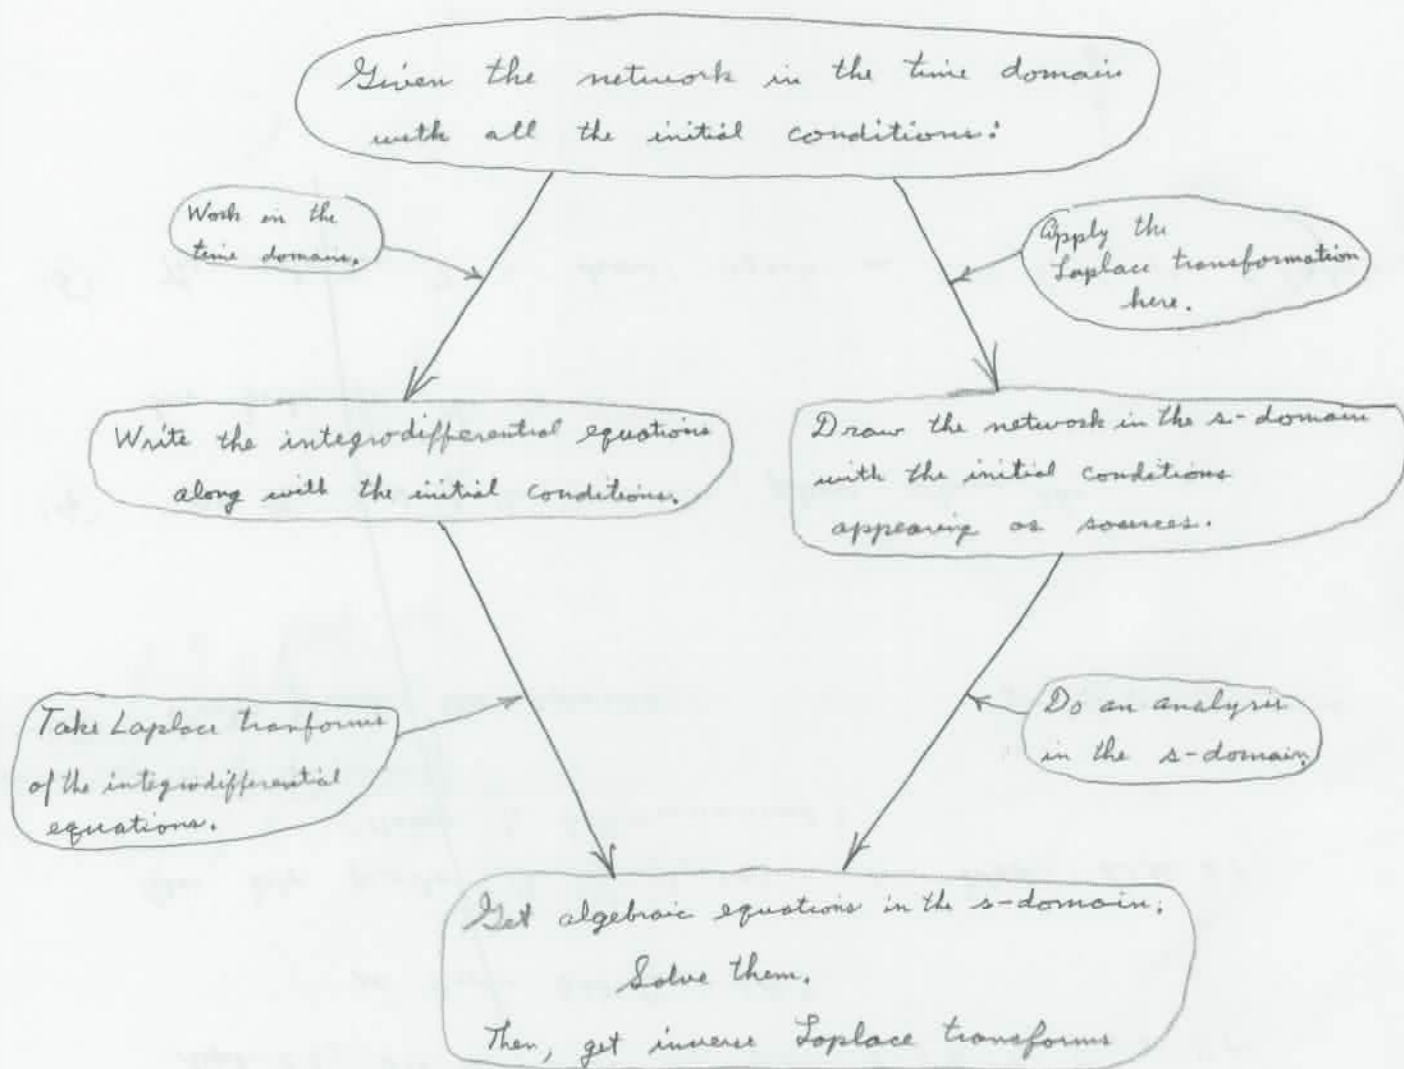 Given the network in the time domain
with all the initial conditions:
Work in the
time domain.
Apply the
Laplace transformation
here.
Write the integrodifferential equations
along with the initial conditions.
Draw the network in the s-domain
with the initial conditions
appearing as sources.
Take Laplace tranforms
of the integrodifferential
equations.
Do an analysis
in the s-domain.
Get algebraic equations in the s-domain.
Solve them.
Then, get inverse Laplace transforms